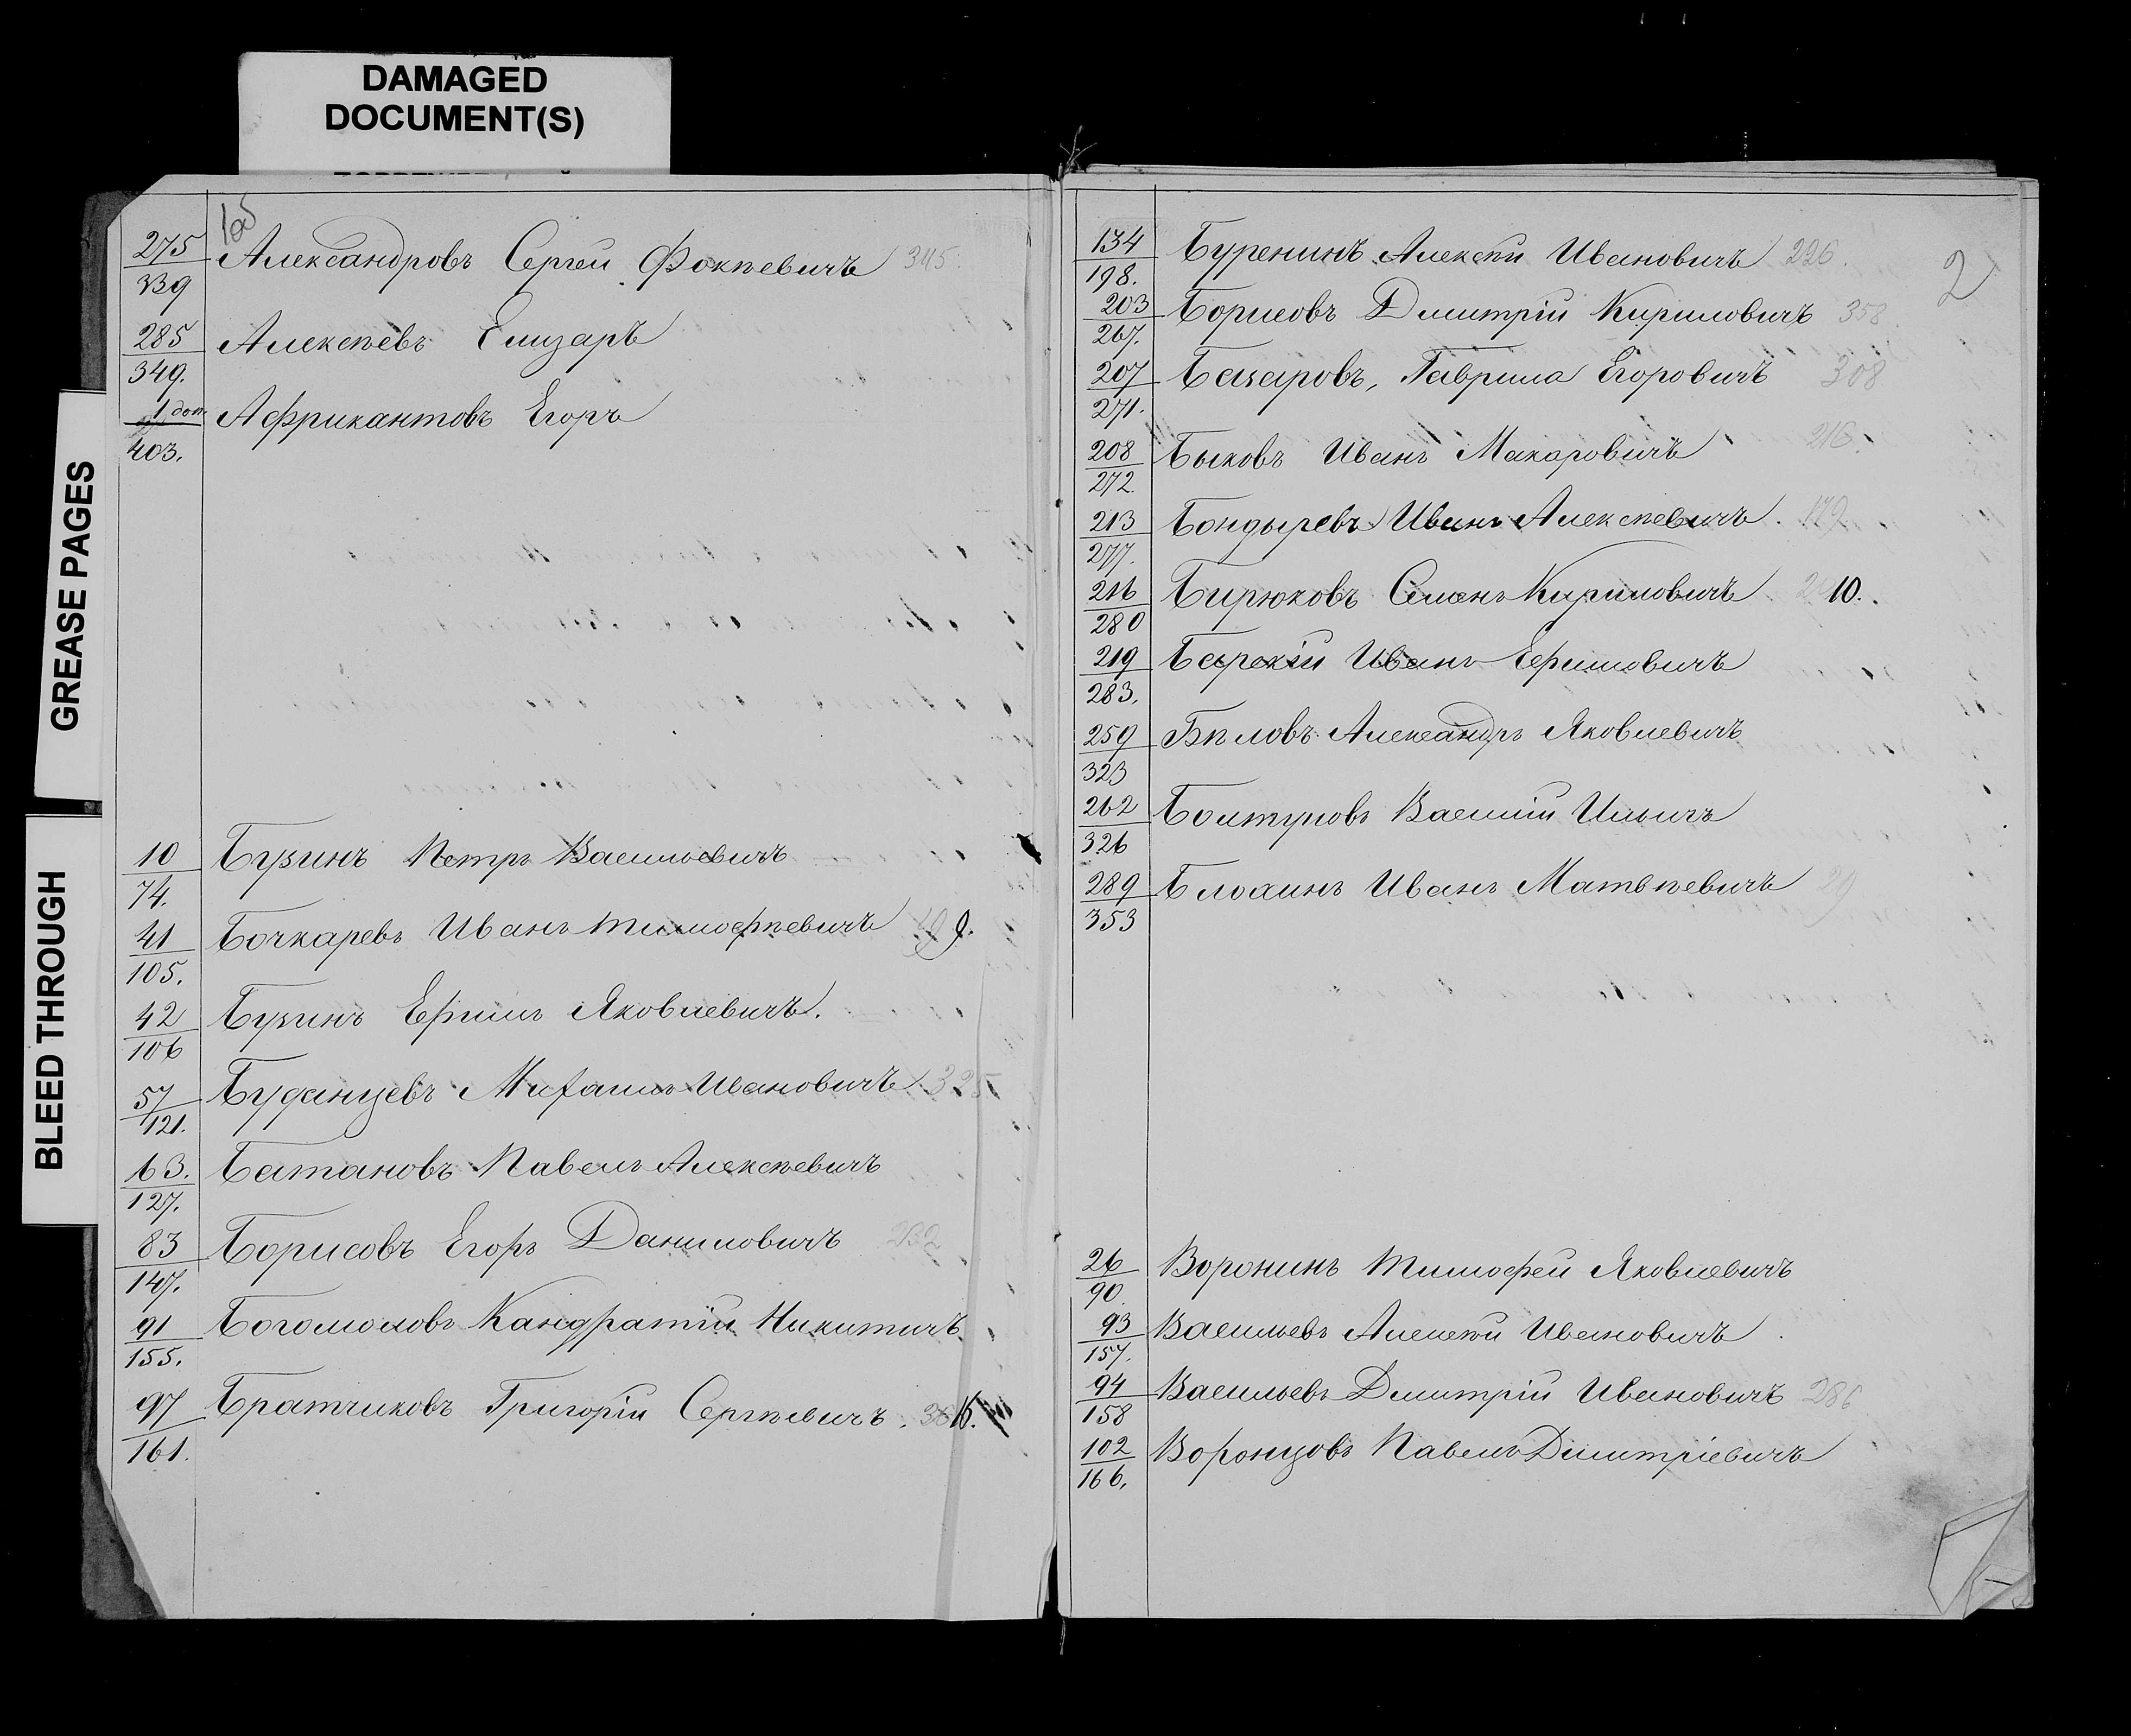 DAMAGED
DOCUMENT(S)
GREASE PAGES
BLEED THROUGH
275 Александровъ Сергей Фокѣевичъ 345.
339
285 Алексѣевъ Елизаръ
349.
1 доп. Африкантовъ Егоръ
403.
10 Бузинъ Петръ Васильевичъ
74.
41 Бочкаревъ Иванъ Тимофѣевичъ 9.
105.
42 Бузинъ Ефимъ Яковлевичъ.
106
57 Буданцевъ Михаилъ Ивановичъ 325
121.
63. Батановъ Павелъ Алексѣевичъ
127.
83 Борисовъ Егоръ Даниловичъ 232
147.
91 Богомоловъ Кандратій Никитичъ.
155.
97 Братчиковъ Григорій Сергѣевичъ.
161.
2
134 Буренинъ Алексѣй Ивановичъ 226.
198.
203 Борисовъ Дмитрій Кириловичъ 358
267.
207 Базаровъ, Гаврила Егоровичъ 308
271.
208 Быковъ Иванъ Макаровичъ 216.
272.
213 Бондыревъ Иванъ Алексѣевичъ. 179
277.
216 Бирюковъ Семенъ Кириловичъ 10.
280
219 Барскій Иванъ Ефимовичъ
283.
259 Бѣловъ Александръ Яковлевичъ
323
262 Болтуновъ Василій Ильичъ
326
289 Блохинъ Иванъ Матвѣевичъ 29
353
26 Воронинъ Тимофей Яковлевичъ
90.
93 Васильевъ Алексѣй Ивановичъ
157.
94 Васильевъ Дмитрій Ивановичъ 286
158
102 Воронцовъ Павелъ Дмитріевичъ
166.